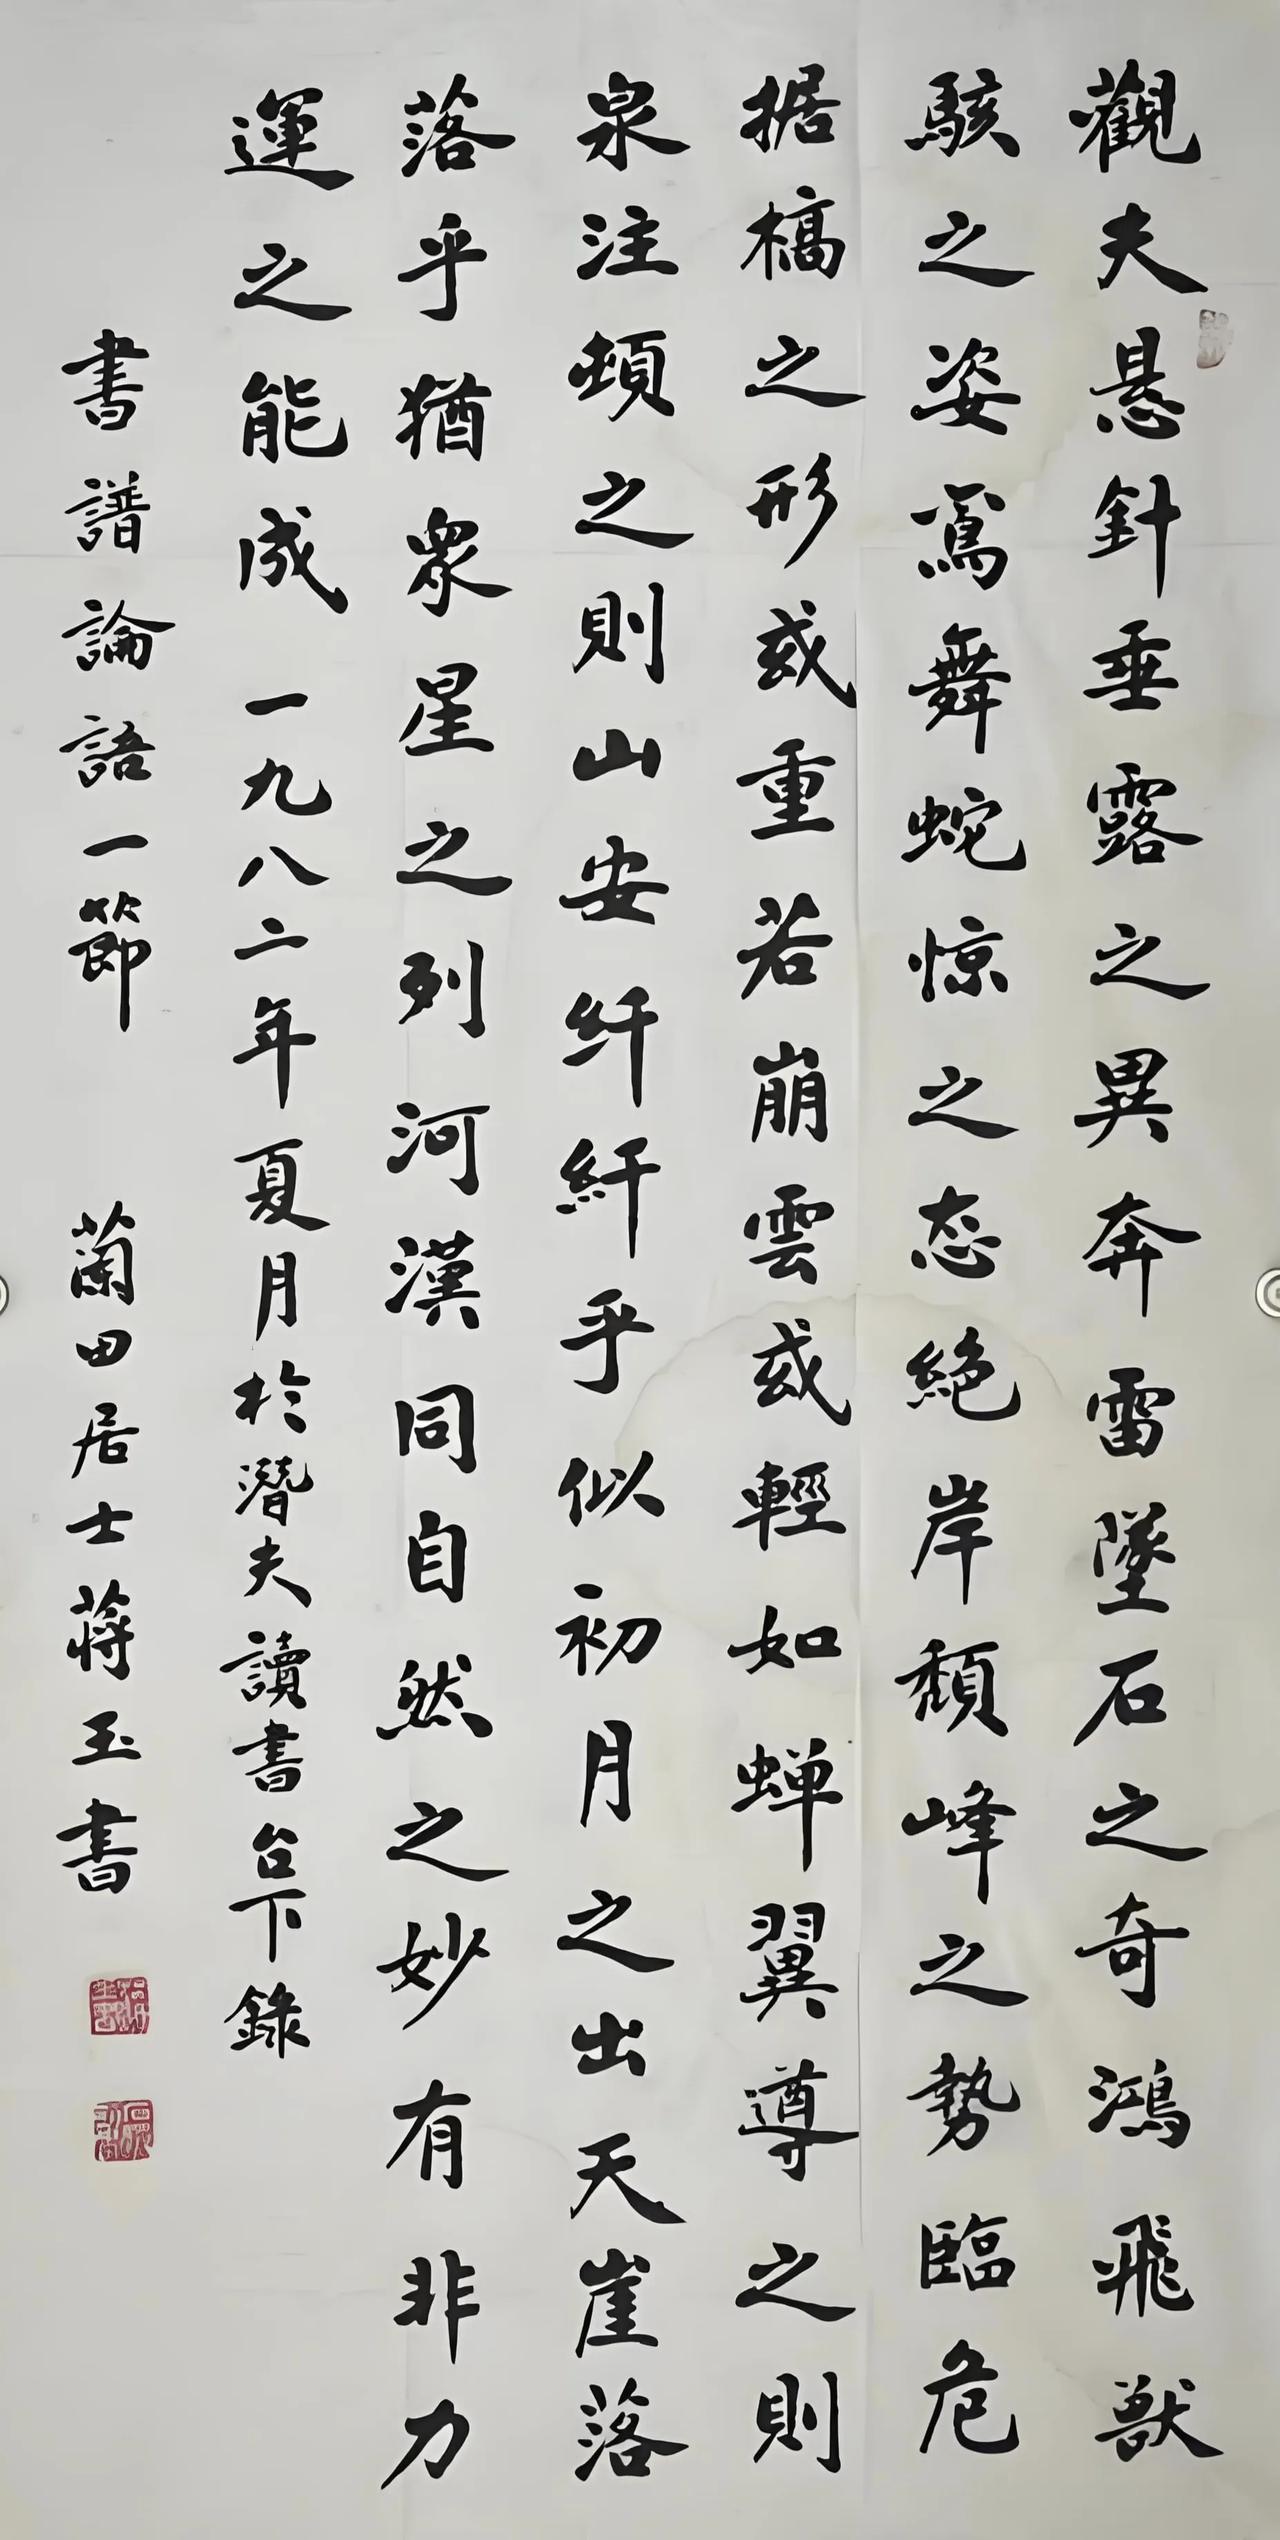 觀夫悬針垂露之異奔雷墜石之奇鴻飛獸
駭之姿鸾舞蛇惊之态絶岸頹峰之勢臨危
据槁之形或重若崩雲或輕如蝉翼導之則
泉注頓之則山安纤纤乎似初月之出天崖落
落乎猶衆星之列河漢同自然之妙有非力
運之能成 一九八二年夏月於潛夫讀書台下錄
書譜論語一節 蘭田居士蔣玉書